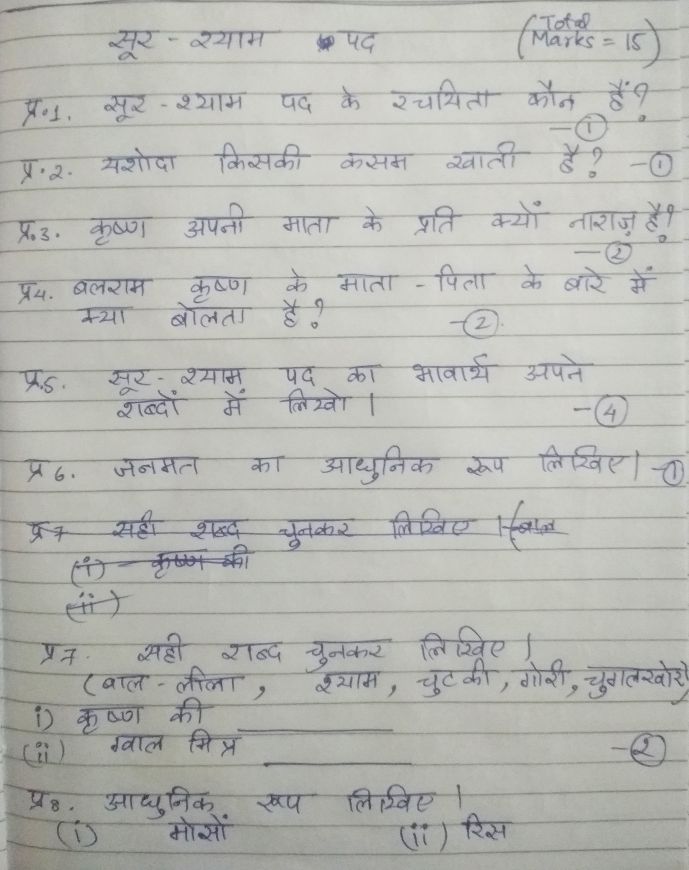 सूर - श्याम पद (Total Marks = 15)
प्र.1. सूर - श्याम पद के रचयिता कौन हैं?
-①
प्र.2. यशोदा किसकी कसम खाती है? -①
प्र.3. कृष्ण अपनी माता के प्रति क्यों नाराज़ है?
-②
प्र4. बलराम कृष्ण के माता - पिता के बारे में
क्या बोलता है? -②.
प्र.5. सूर - श्याम पद का भावार्थ अपने
शब्दों में लिखो। -④
प्र 6. जनमत का आधुनिक रूप लिखिए। -①
प्र 7 सही शब्द चुनकर लिखिए। (बाल
(i) कृष्ण की
(ii)
प्र 7. सही शब्द चुनकर लिखिए।
(बाल - लीला, श्याम, चुटकी, गोरी, चुगलखोर)
i) कृष्ण की ________
(ii) ग्वाल मित्र ________ -②
प्र 8. आधुनिक रूप लिखिए।
(i) मोसों (ii) रिस